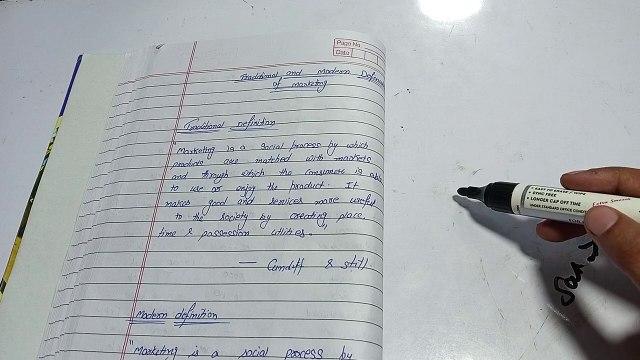 Page No.
Date
Traditional and modern Defin
of marketing
Traditional definition
"Marketing is a social process by which
products are matched with markets
and through which the consumer is able
to use or enjoy the product. It
makes good and services more useful
to the society by creating place,
time & possession utilities."
— Cundiff & still
Modern definition
"Marketing is a social process by
• EASY TO ERASE / WIPE
• SYNC FREE
• LONGER CAP OFF TIME
UNDER STANDARD OFFICE CONDI